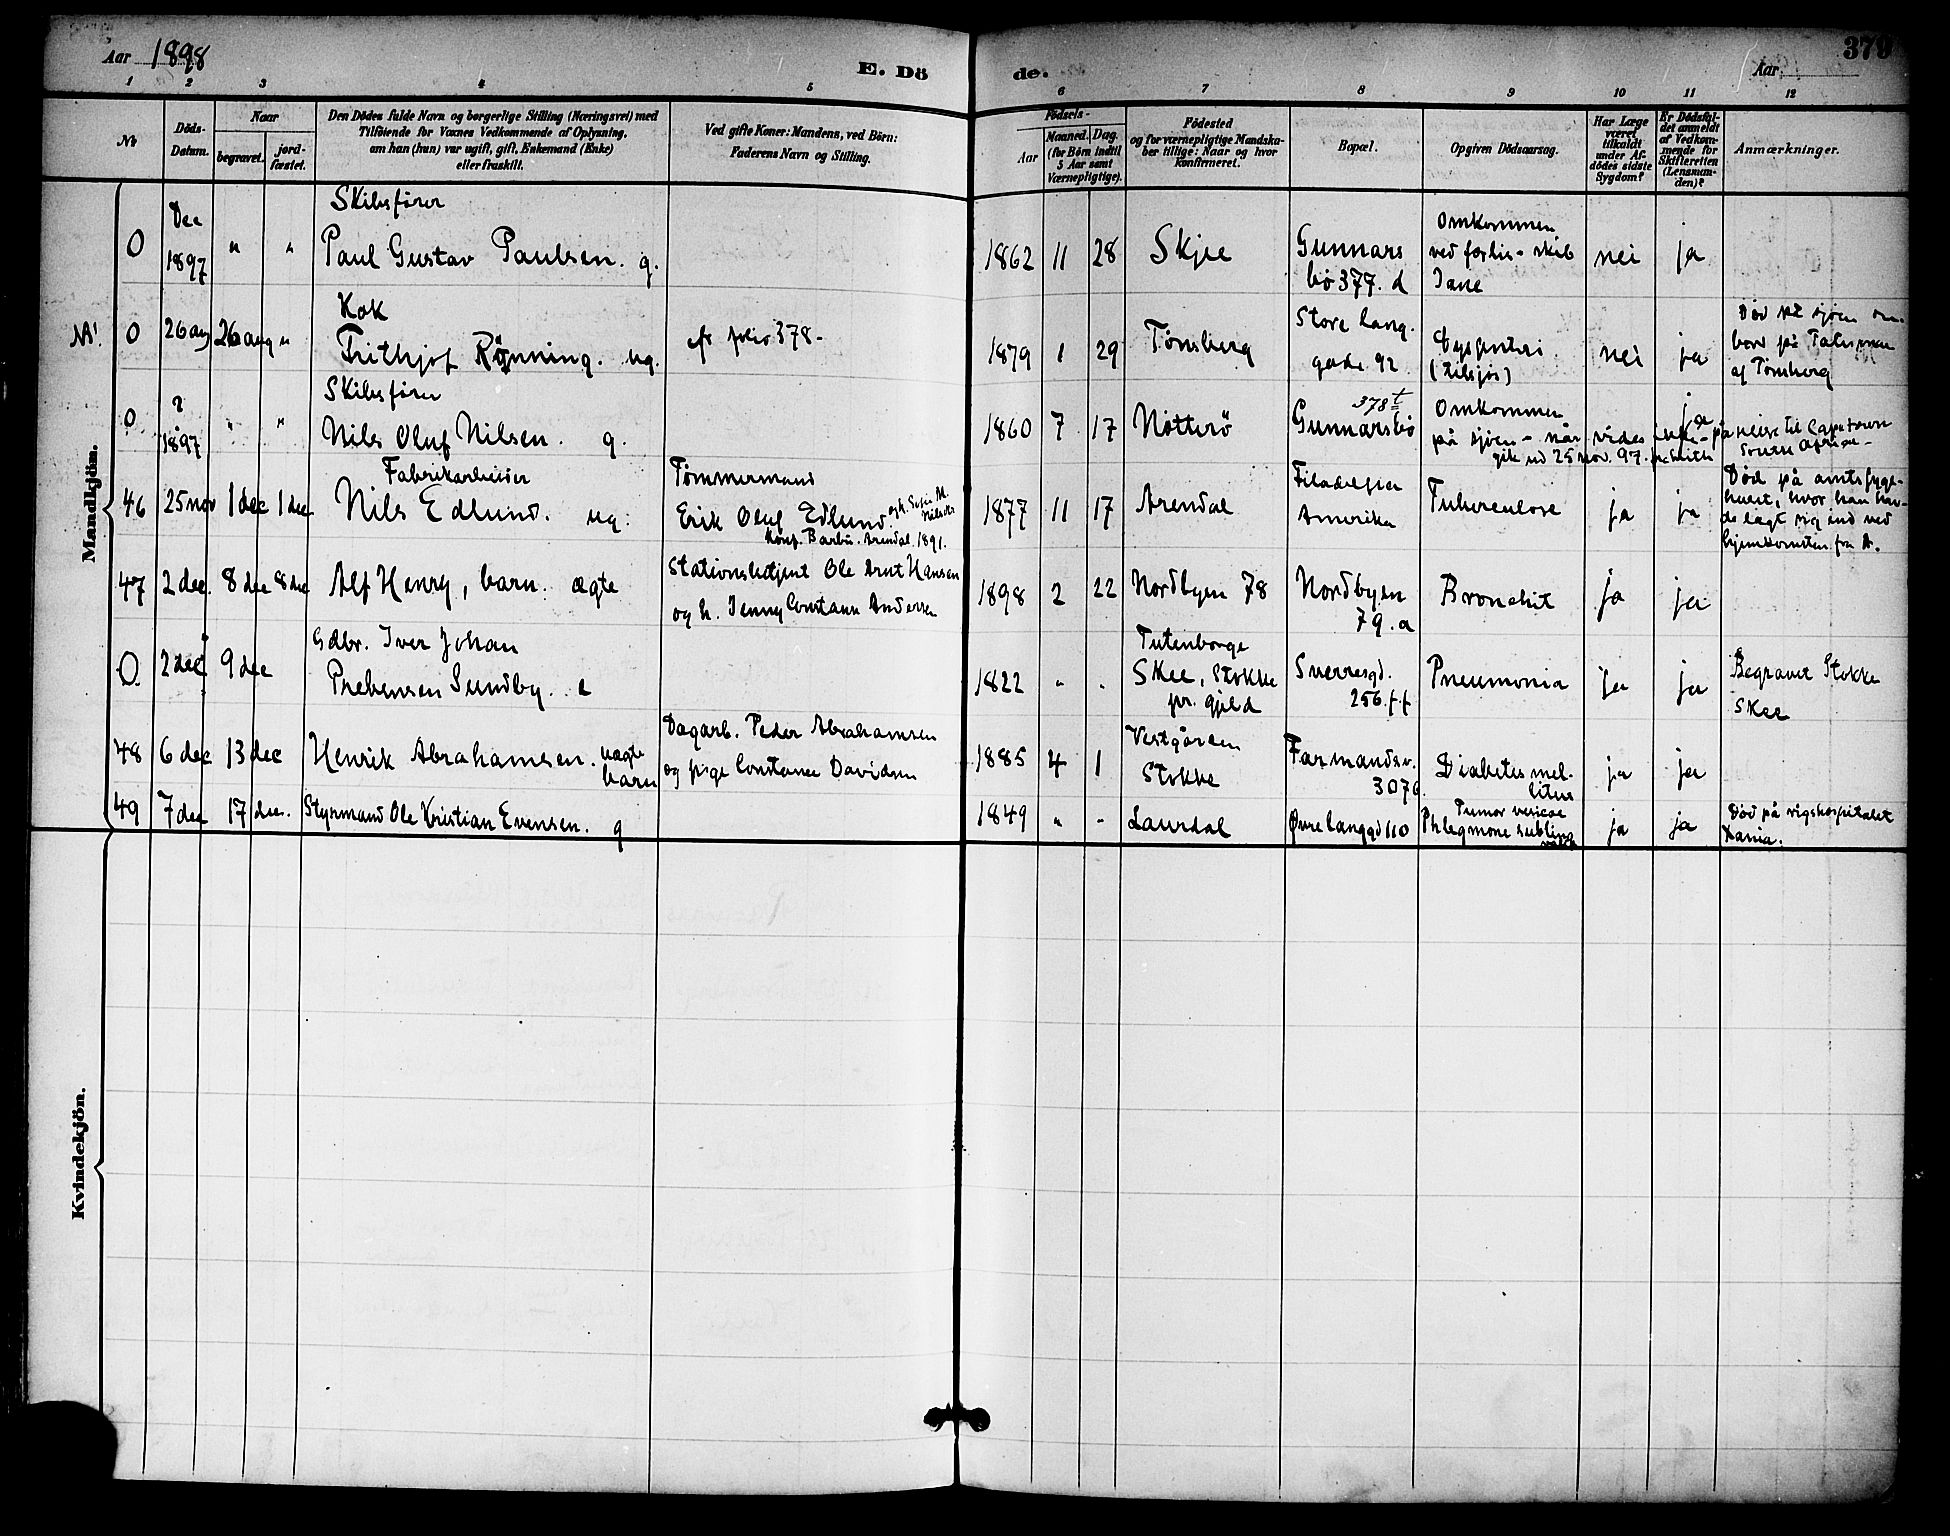 Aar 1898
E. Dö
de.
379
Aar
1 2 3 4 5 6 7 8 9 10 11 12
№
Döds-Datum.
Naar
begravet.
jord-fæstet.
Den Dödes fulde Navn og borgerlige Stilling (Næringsvei) med
Tilföiende for Voxnes Vedkommende af Oplysning,
om han (hun) var ugift, gift, Enkemand (Enke)
eller fraskilt.
Ved gifte Koner: Mandens, ved Börn:
Faderens Navn og Stilling.
Födsels-
Aar
Maaned. Dag.
(for Börn indtil
5 Aar samt
Værnepligtige).
Födested
og for værnepligtige Mandska-
ber tillige: Naar og hvor
konfirmeret.
Bopæl.
Opgiven Dödsaarsag.
Har Læge
været
tilkaldt
under Af-
dödes sidste
Sygdom?
Er Dödsfal-
det anmeldt
af Vedkom-
mende for
Skifteretten
(Lensman-
den)?
Anmærkninger.
Mandkjön.
0 Dec 1897 " "
Skibsfører
Paul Gustav Paulsen. g.
1862 11 28 Skjee
Gunnars
bö 377. d
Omkommen
ved forlis - skib
Jane
nei ja
N1.
0 26 aug 26 aug "
Kok
Frithjof Rønning. ug.
cfr folio 378-
1879 1 29 Tønsberg
Store Lang.
gade 92
Dysenteri
(tilsjøs)
nei ja
Død på sjøen om-
bord på Talisman
af Tønsberg
0 ? 1897 " "
Skibsfører
Nils Oluf Nilsen. g.
1860 7 17 Nøtterö
378 t
Gunnarsbö
Omkommen
på sjøen - når vides ikke - på reise til Capetown
gik ud 25 nov. 97.
South Africa -
ja
46 25 nov 1 dec 1 dec
Fabrikarbeider
Nils Edlund. ug.
Tømmermand
Erik Oluf Edlund. og h. Sofie M. Nilsen
Konf. Barbu. Arendal. 1891.
1877 11 17 Arendal
Filadelfia
Amerika
Tuberculose
ja ja
Død på amtssyge-
huset, hvor han hav-
de lagt sig ind ved
hjemkomsten fra A.
47 2 dec. 8 dec 8 dec
Alf Henry, barn. ægte
Stationsbetjent Ole Arnt Hansen
og h. Jenny Constance Andersen
1898 2 22 Nordbyen 78
Nordbyen
79. a
Bronchit
ja ja
0 2 dec 9 dec
Gdbr. Iver Johan
Prebensen Sundby. e
1822 " "
Tutenborge
Skee, Stokke
pr. gjeld
Sverresgd.
256. f f
Pneumonia
ja ja
Begravet Stokke
Skee
48 6 dec 13 dec
Henrik Abrahamsen. uægte
barn
Dagarb. Peder Abrahamsen
og pige Constance Davidsen
1885 4 1
Vestgården
Stokke
Farmandsv.
307
Diabetes mel-
litus
ja ja
49 7 dec 17 dec.
Styrmand Ole Kristian Evensen. g
1849 " "
Laurdal
Øvre Langgd 110
Tumor vesicae
Phlegmone subling
ja ja
Død på rigshospitalet
Xania.
Kvindekjön.